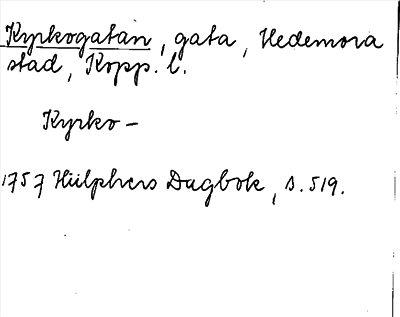 Kyrkogatan, gata, Hedemora
stad, Kopp. l.
Kyrko-
1757 Hülphers Dagbok, s. 519.